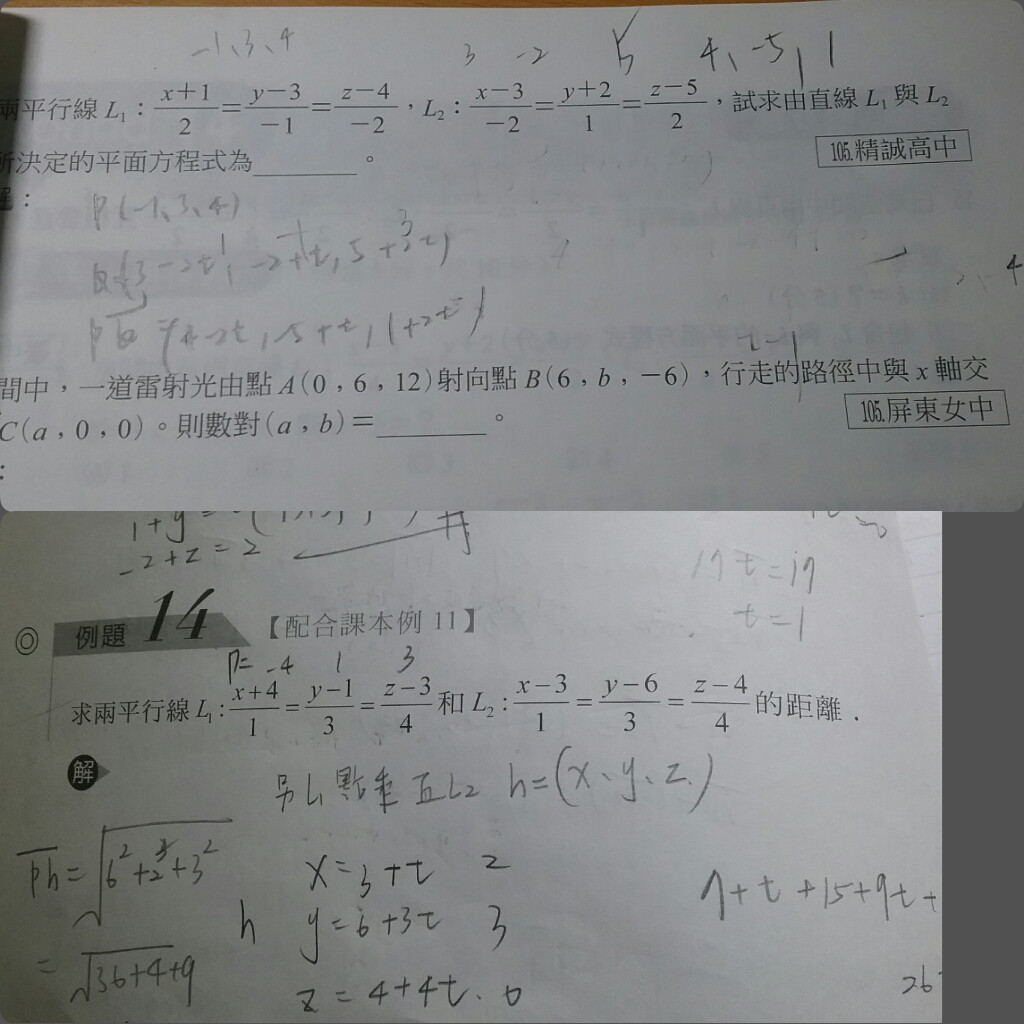 -1、3、4 3 -2 5 4、-5, 1
兩平行線 L₁：(x+1)/2=(y-3)/-1=(z-4)/-2，L₂：(x-3)/-2=(y+2)/1=(z-5)/2，試求由直線 L₁ 與 L₂
所決定的平面方程式為________。
105.精誠高中
P(-1、3、4)
t=1
間中，一道雷射光由點 A(0，6，12)射向點 B(6，b，-6)，行走的路徑中與 x 軸交
C(a，0，0)。則數對(a，b)=________。
105.屏東女中
-2+z=2
17t=17
t=1
◎ 例題 14 【配合課本例 11】
P= -4 1 3
求兩平行線 L₁:(x+4)/1=(y-1)/3=(z-3)/4 和 L₂:(x-3)/1=(y-6)/3=(z-4)/4 的距離．
解
另L₁點垂直L₂ h=(x、y、z、)
Ph=√6²+2²+3² x=3+t 2
h y=6+3t 3 7+t+15+9t+
=√36+4+9 z=4+4t. 0 26